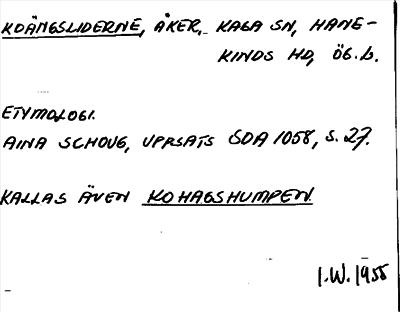 KOÄNGSLIDERNE, ÅKER, KAGA SN, HANE-
KINDS HD, ÖG.L.
ETYMOLOGI.
AINA SCHOUG, UPPSATS SOA 1058, S. 27.
KALLAS ÄVEN KOHAGSHUMPEN.
I.W. 1955